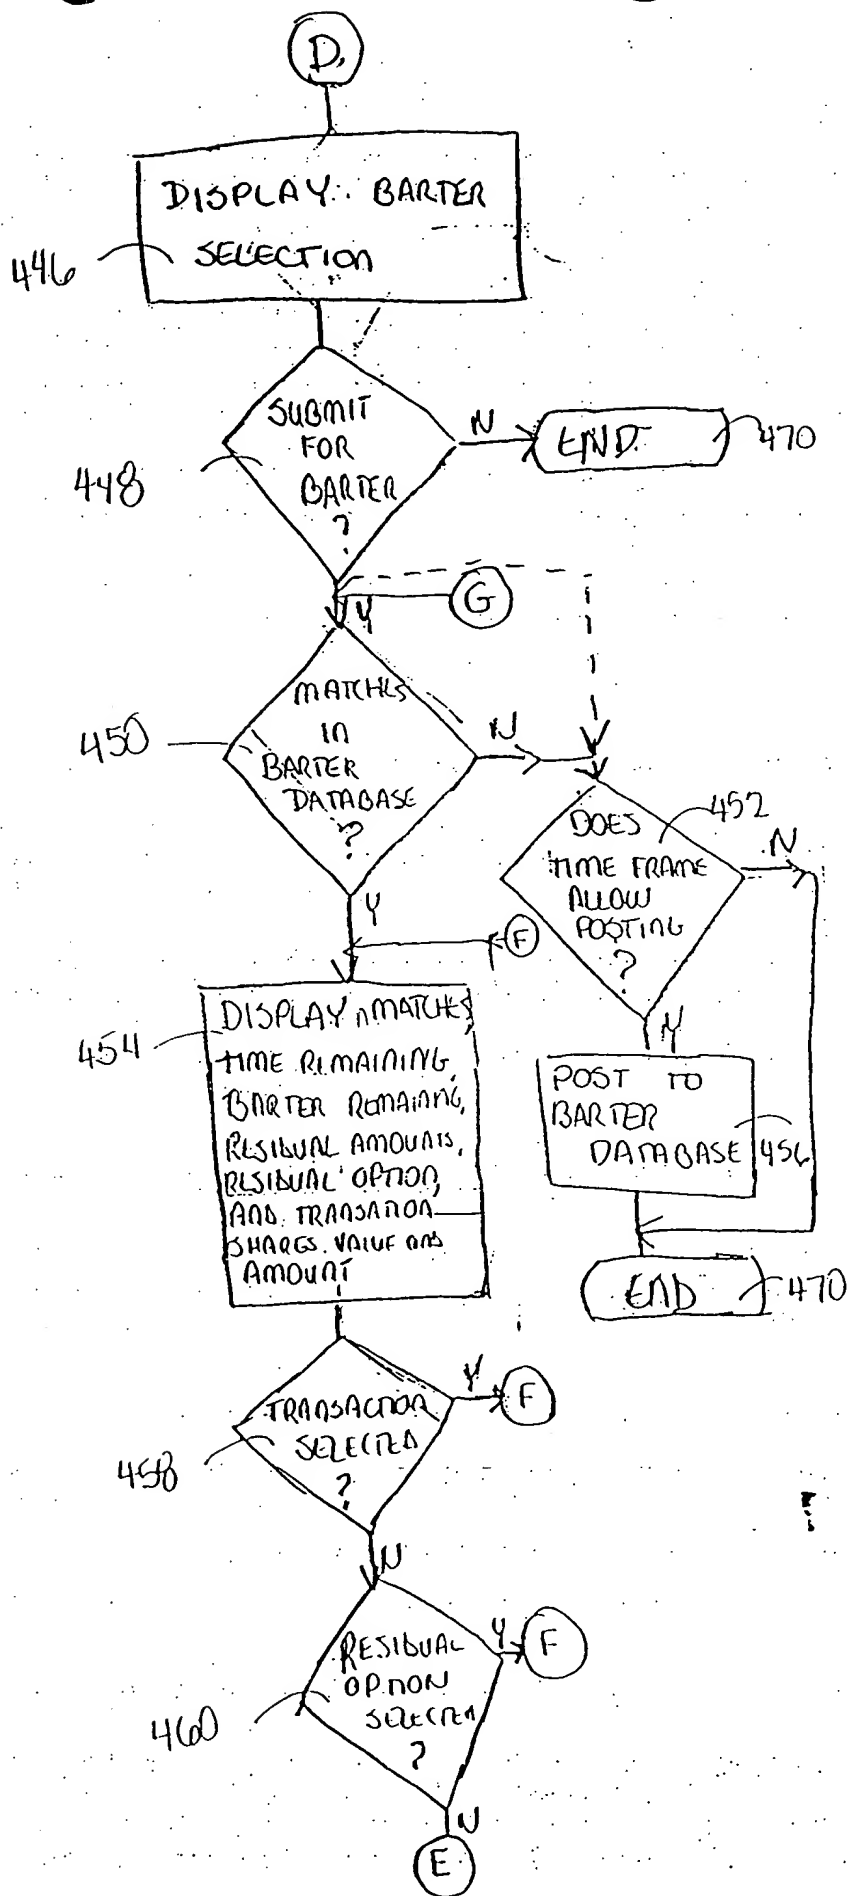 D.
DISPLAY BARTER
SELECTION
446
SUBMIT
FOR
BARTER
?
448
N
END.
470
Y
G
MATCHES
IN
BARTER
DATABASE
?
450
N
452
DOES
TIME FRAME
ALLOW
POSTING
?
N
Y
F
DISPLAY n MATCHES,
TIME REMAINING,
BARTER REMAINING,
RESIDUAL AMOUNTS,
RESIDUAL OPTION,
AND TRANSATION
SHARES VALUE AND
AMOUNT
454
Y
POST TO
BARTER
DATABASE
456
END
470
TRANSACTION
SELECTED
?
458
Y
F
N
RESIDUAL
OPTION
SELECTED
?
460
Y
F
N
E